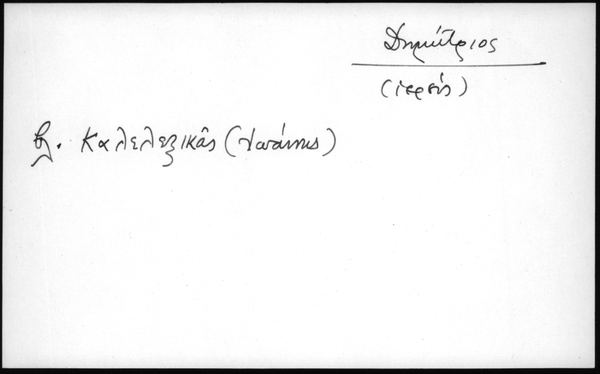 Δημήτριος
(ἱερεύς)
βλ. Καλελεζικᾶς (Ἰωάννης)